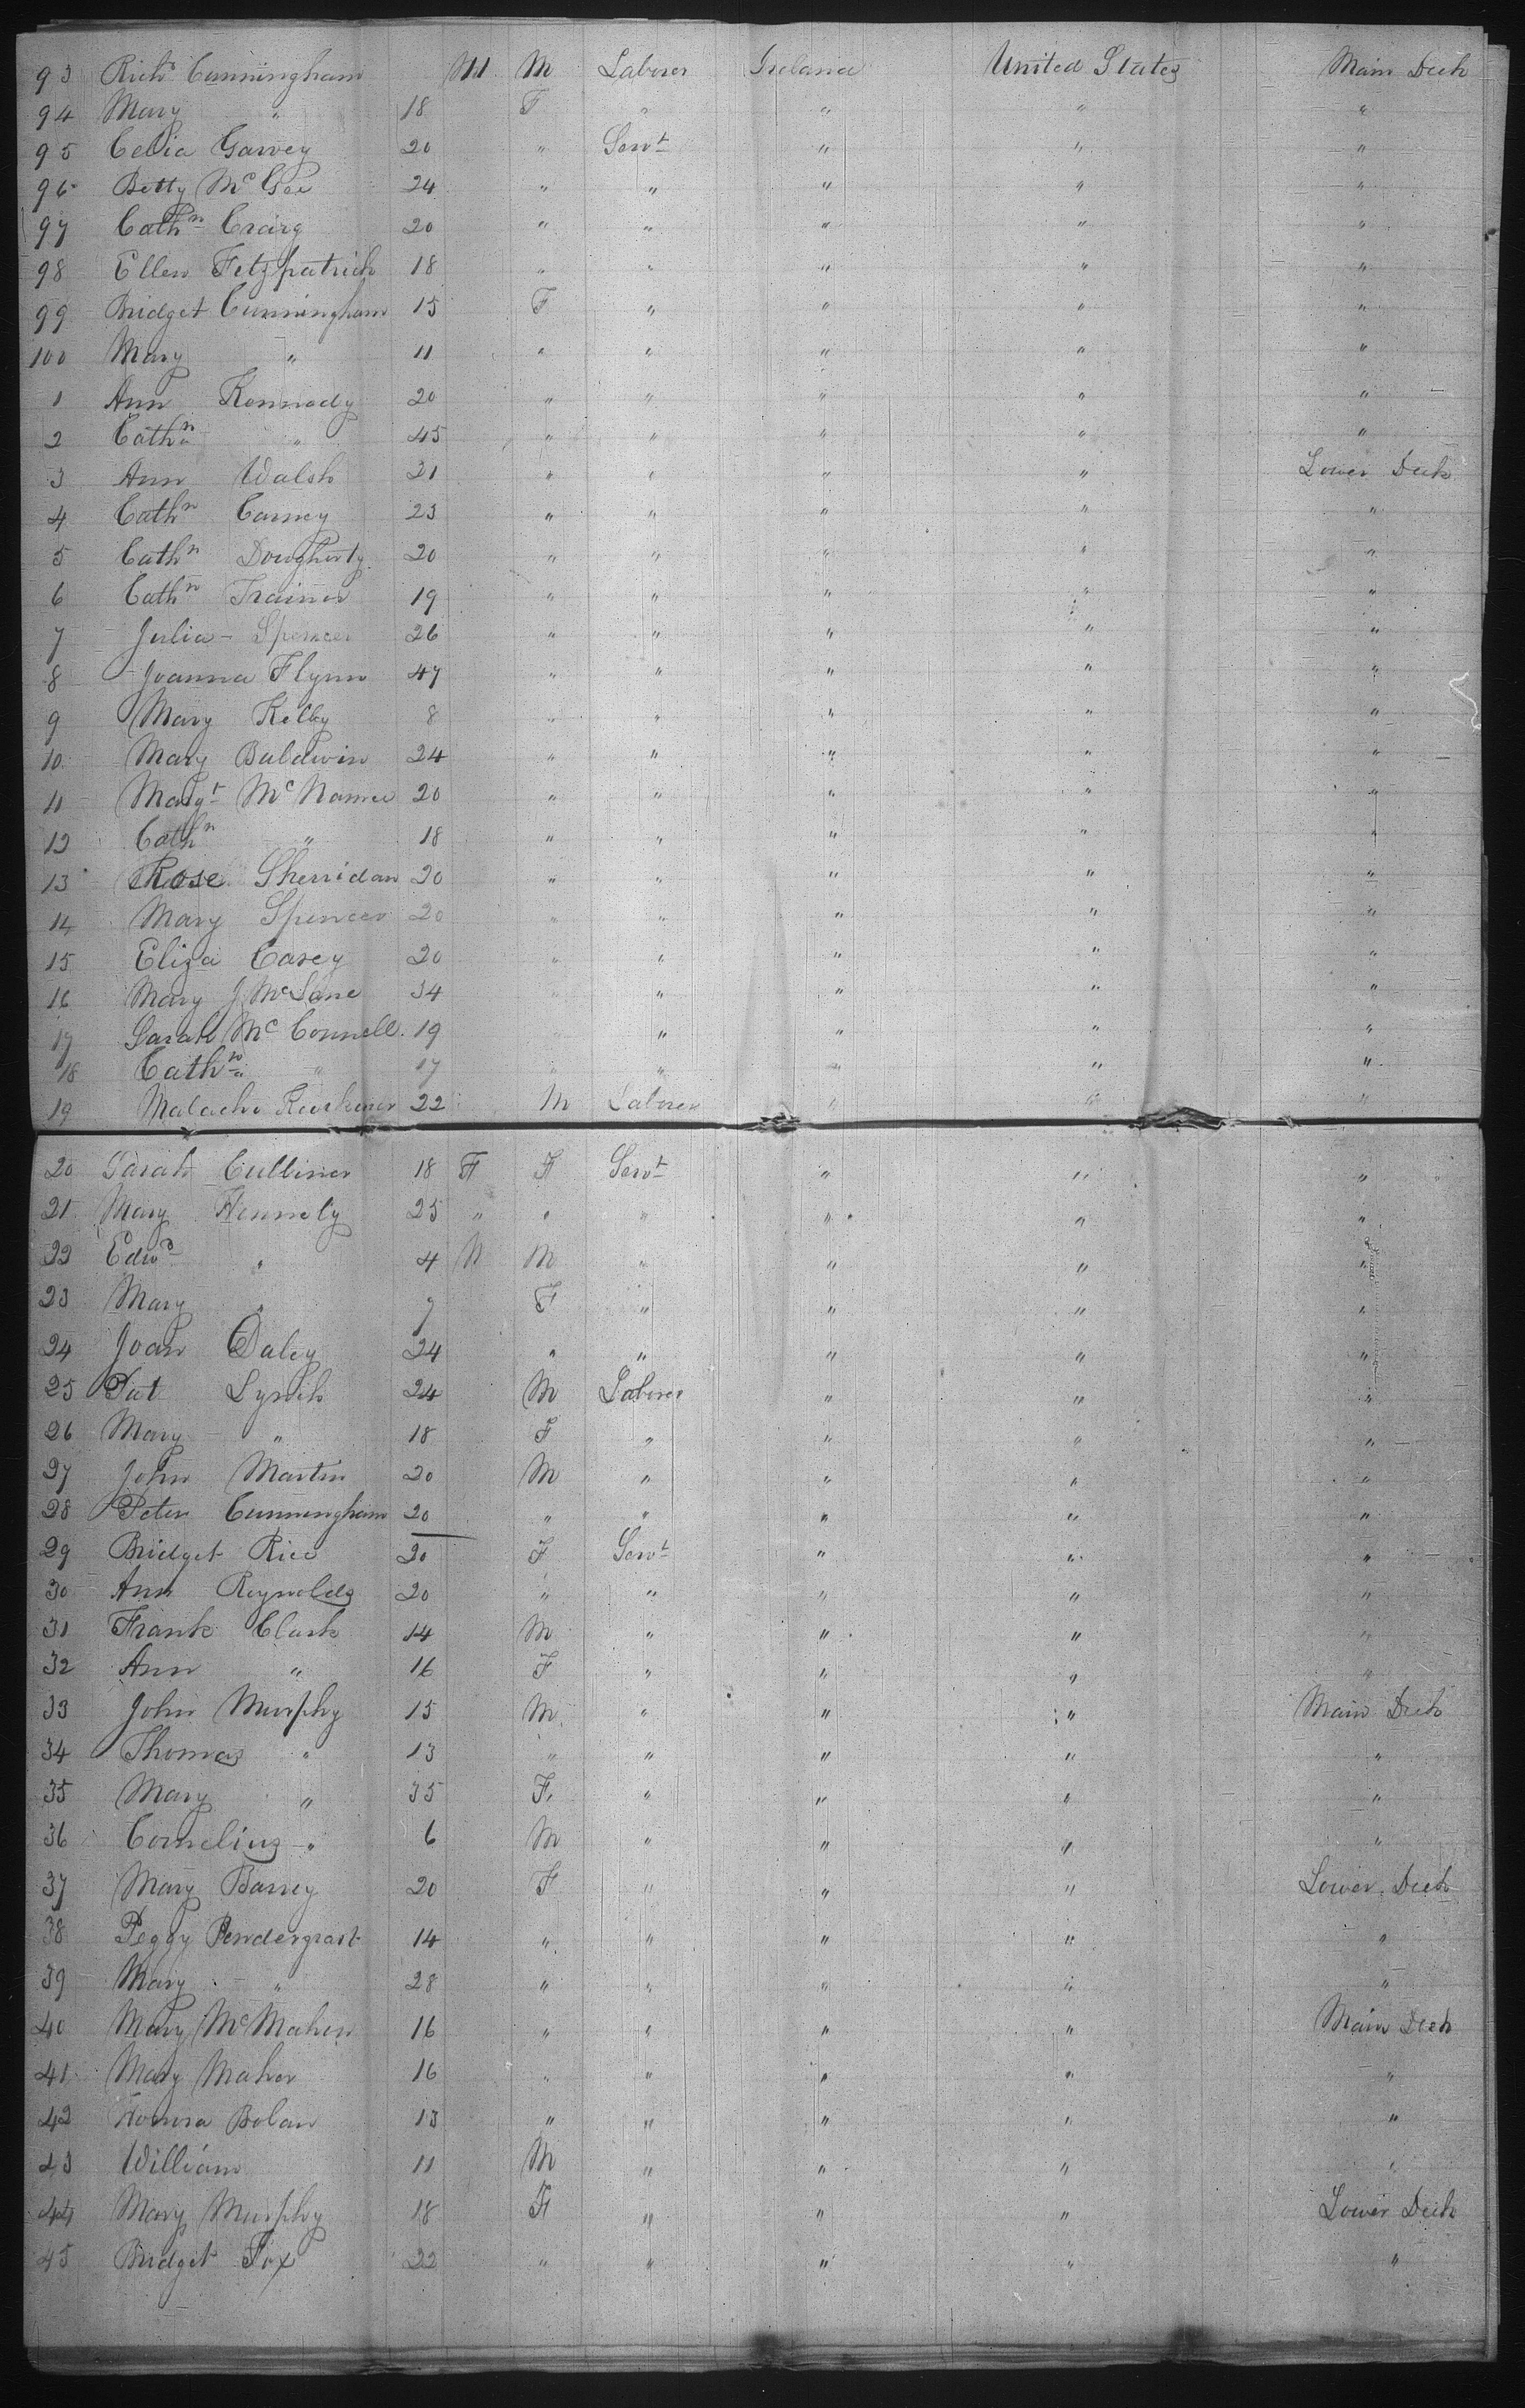 93 Richd Cunningham M M Laborer Ireland United States Main Deck
94 Mary " 18 F " " " "
95 Celia Garvey 20 " Servt " " "
96 Betty McGee 24 " " " " "
97 Cathn Craig 20 " " " " "
98 Ellen Fitzpatrick 18 " " " " "
99 Bridget Cunningham 15 F " " " "
100 Mary " 11 " " " " "
1 Ann Kennady 20 " " " " "
2 Cathn " 45 " " " " "
3 Ann Walsh 21 " " " " Lower Deck
4 Cathn Carney 23 " " " " "
5 Cathn Dougherty 20 " " " " "
6 Cathn Trainer 19 " " " " "
7 Julia Spencer 26 " " " " "
8 Joanna Flynn 47 " " " " "
9 Mary Kelly 8 " " " " "
10 Mary Baldwin 24 " " " " "
11 Margt McNamee 20 " " " " "
12 Cathn " 18 " " " " "
13 Rose Sherridan 20 " " " " "
14 Mary Spencer 20 " " " " "
15 Eliza Casey 20 " " " " "
16 Mary J McLane 34 " " " "
17 Sarah McConnell 19 " " " "
18 Cathn " 17 " " " " "
19 Malachi 22 M Laborer " " "
20 Sarah Culliner 18 F F Servt " " "
21 Mary Hennely 25 " " " " " "
22 Edwd " 4 M M " " " "
23 Mary " 7 F " " " "
24 Joan Daley 24 " " " " "
25 Pat Lynch 24 M Laborer " " "
26 Mary " 18 F " " " "
27 John Martin 20 M " " " "
28 Peter Cunningham 20 " " " " "
29 Bridget Rice 20 F Servt " " "
30 Ann Reynolds 20 " " " " "
31 Frank Clark 14 M " " " "
32 Ann " 16 F " " " "
33 John Murphy 15 M " " " Main Deck
34 Thomas " 13 " " " " "
35 Mary " 35 F. " " " "
36 Cornelius " 6 M " " " "
37 Mary Barrey 20 F " " " Lower Deck
38 Peggy Pendergrast 14 " " " " "
39 Mary " 28 " " " " "
40 Mary McMahon 16 " " " " Main Deck
41 Mary Maher 16 " " " " "
42 Honora Bolan 13 " " " " "
43 William 11 M " " " "
44 Mary Murphy 18 F " " " Lower Deck
45 Bridget Fox 22 " " " " "